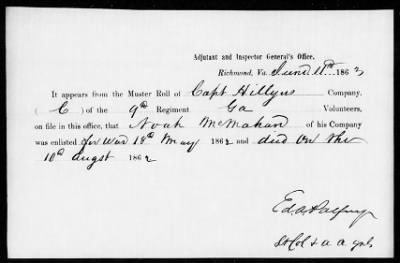 Adjutant and Inspector General's Office,
Richmond, Va. June 11th 1863
It appears from the Muster Roll of Capt Hillyers Company,
( C ) of the 9th Regiment Ga Volunteers,
on file in this office, that Noah McMahan of his Company
was enlisted for War 18th May 1862 and died on the
10th Augst 1862
Ed. A.
Lt Col & a a genl